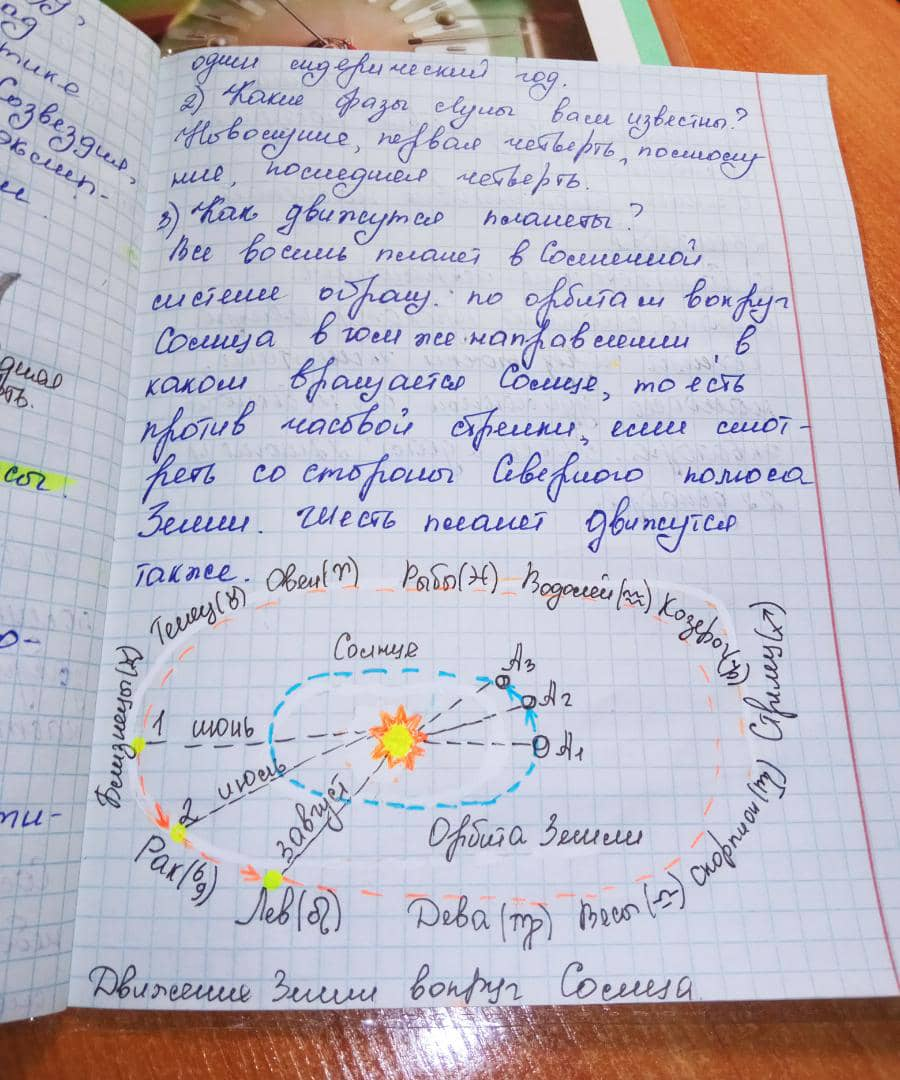 один сидерический год.
2) Какие фазы Луны вам известны?
Новолуние, первая четверть, полнолу
ние, последняя четверть.
3) Как движутся планеты?
Все восемь планет в Солнечной
системе обращ. по орбитам вокруг
Солнца в том же направлении, в
каком вращается Солнце, то есть
против часовой стрелки, если смот-
реть со стороны Северного полюса
Земли. Шесть планет движутся
также.
Телец (♉) Овен (♈) Рыбы (♓) Водолей (♒) Козерог (♑) Стрелец (♐)
Солнце
A3
A2
A1
Близнецы (♊)
1 июнь
2 июль
3 август
Орбита Земли
Рак (♋)
Лев (♌) Дева (♍) Весы (♎) Скорпион (♏)
Движение Земли вокруг Солнца.